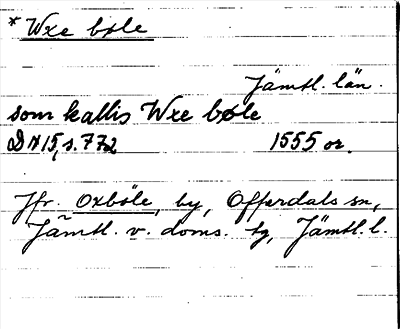 * Wxe bøle
Jämtl. län.
som kallis Wxe bøle
DN 15, s. 772 1555 or.
Jfr. Oxböle, by, Offerdals sn,
Jämtl. v. doms. tg, Jämtl. l.